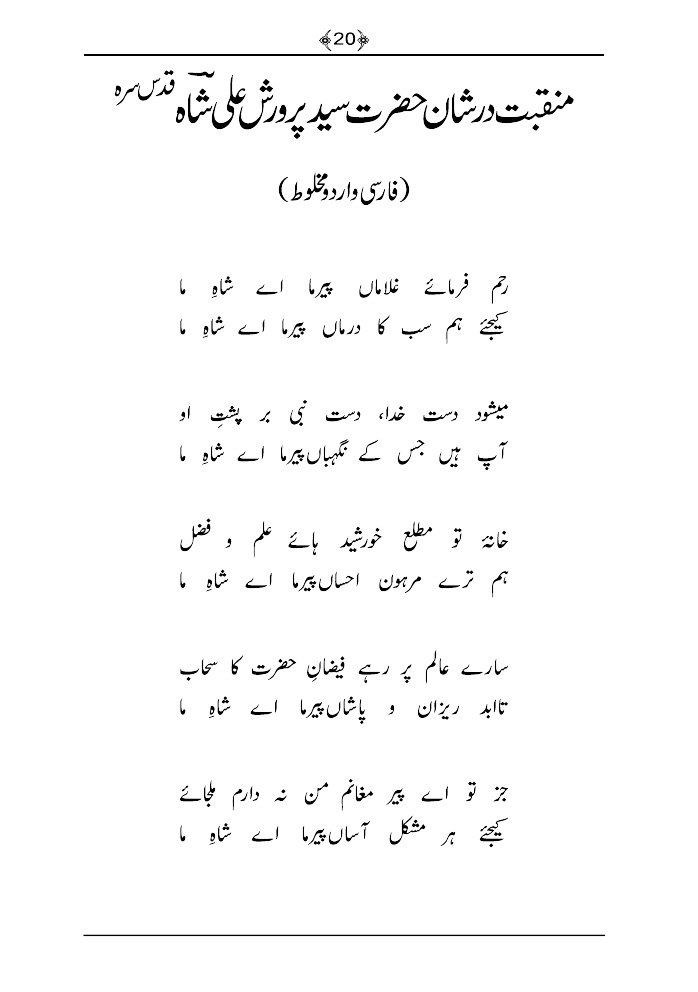 20
منقبت در شان حضرت سید پرورش علی شاہؒ قدس سرہ
(فارسی و اردو مخلوط)
رحم فرمائے غلاماں پیرما اے شاہِ ما
کیجئے ہم سب کا درماں پیرما اے شاہِ ما
میشود دست خدا، دست نبی بر پشتِ او
آپ ہیں جس کے نگہباں پیرما اے شاہِ ما
خانۂ تو مطلع خورشید ہائے علم و فضل
ہم ترے مرہون احساں پیرما اے شاہِ ما
سارے عالم پر رہے فیضانِ حضرت کا سحاب
تاابد ریزان و پاشاں پیرما اے شاہِ ما
جز تو اے پیر مغانم من نہ دارم ملجائے
کیجئے ہر مشکل آساں پیرما اے شاہِ ما